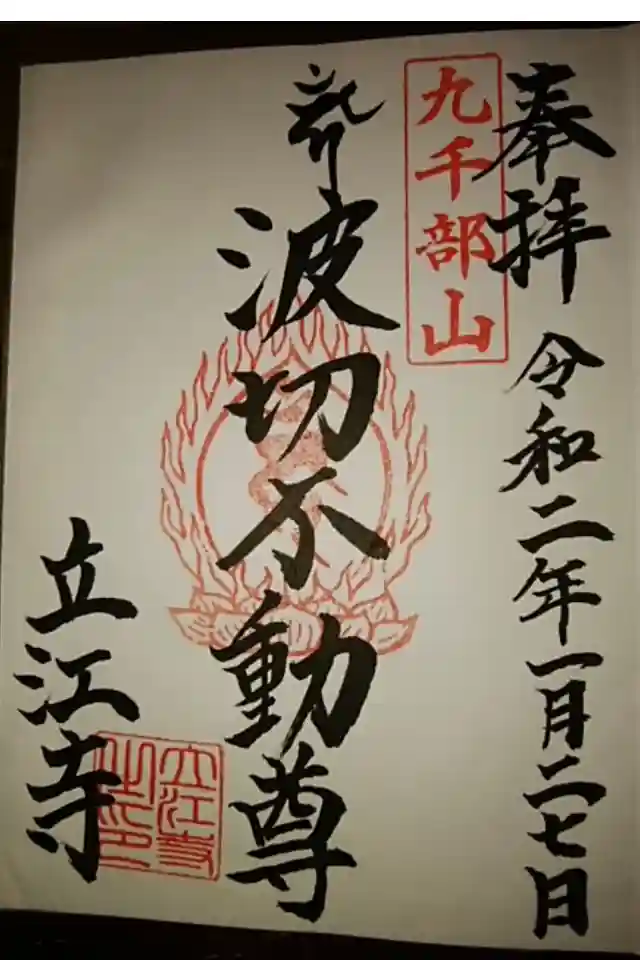 奉拝
令和二年一月二七日
九千部山
波切不動尊
立江寺
立江寺
之印